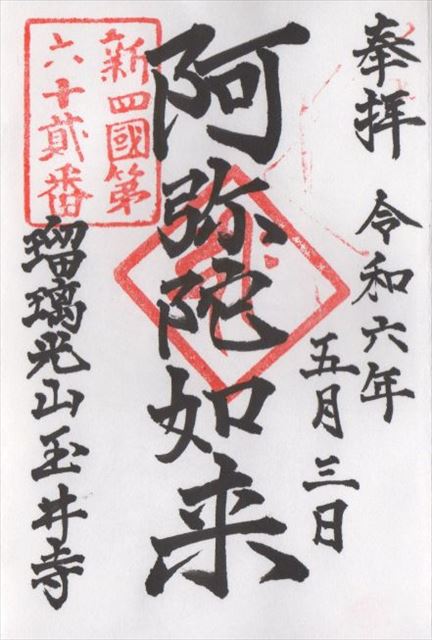 奉拝
令和六年
五月三日
阿弥陀如来
新四國第
六十貳番
瑠璃光山玉井寺